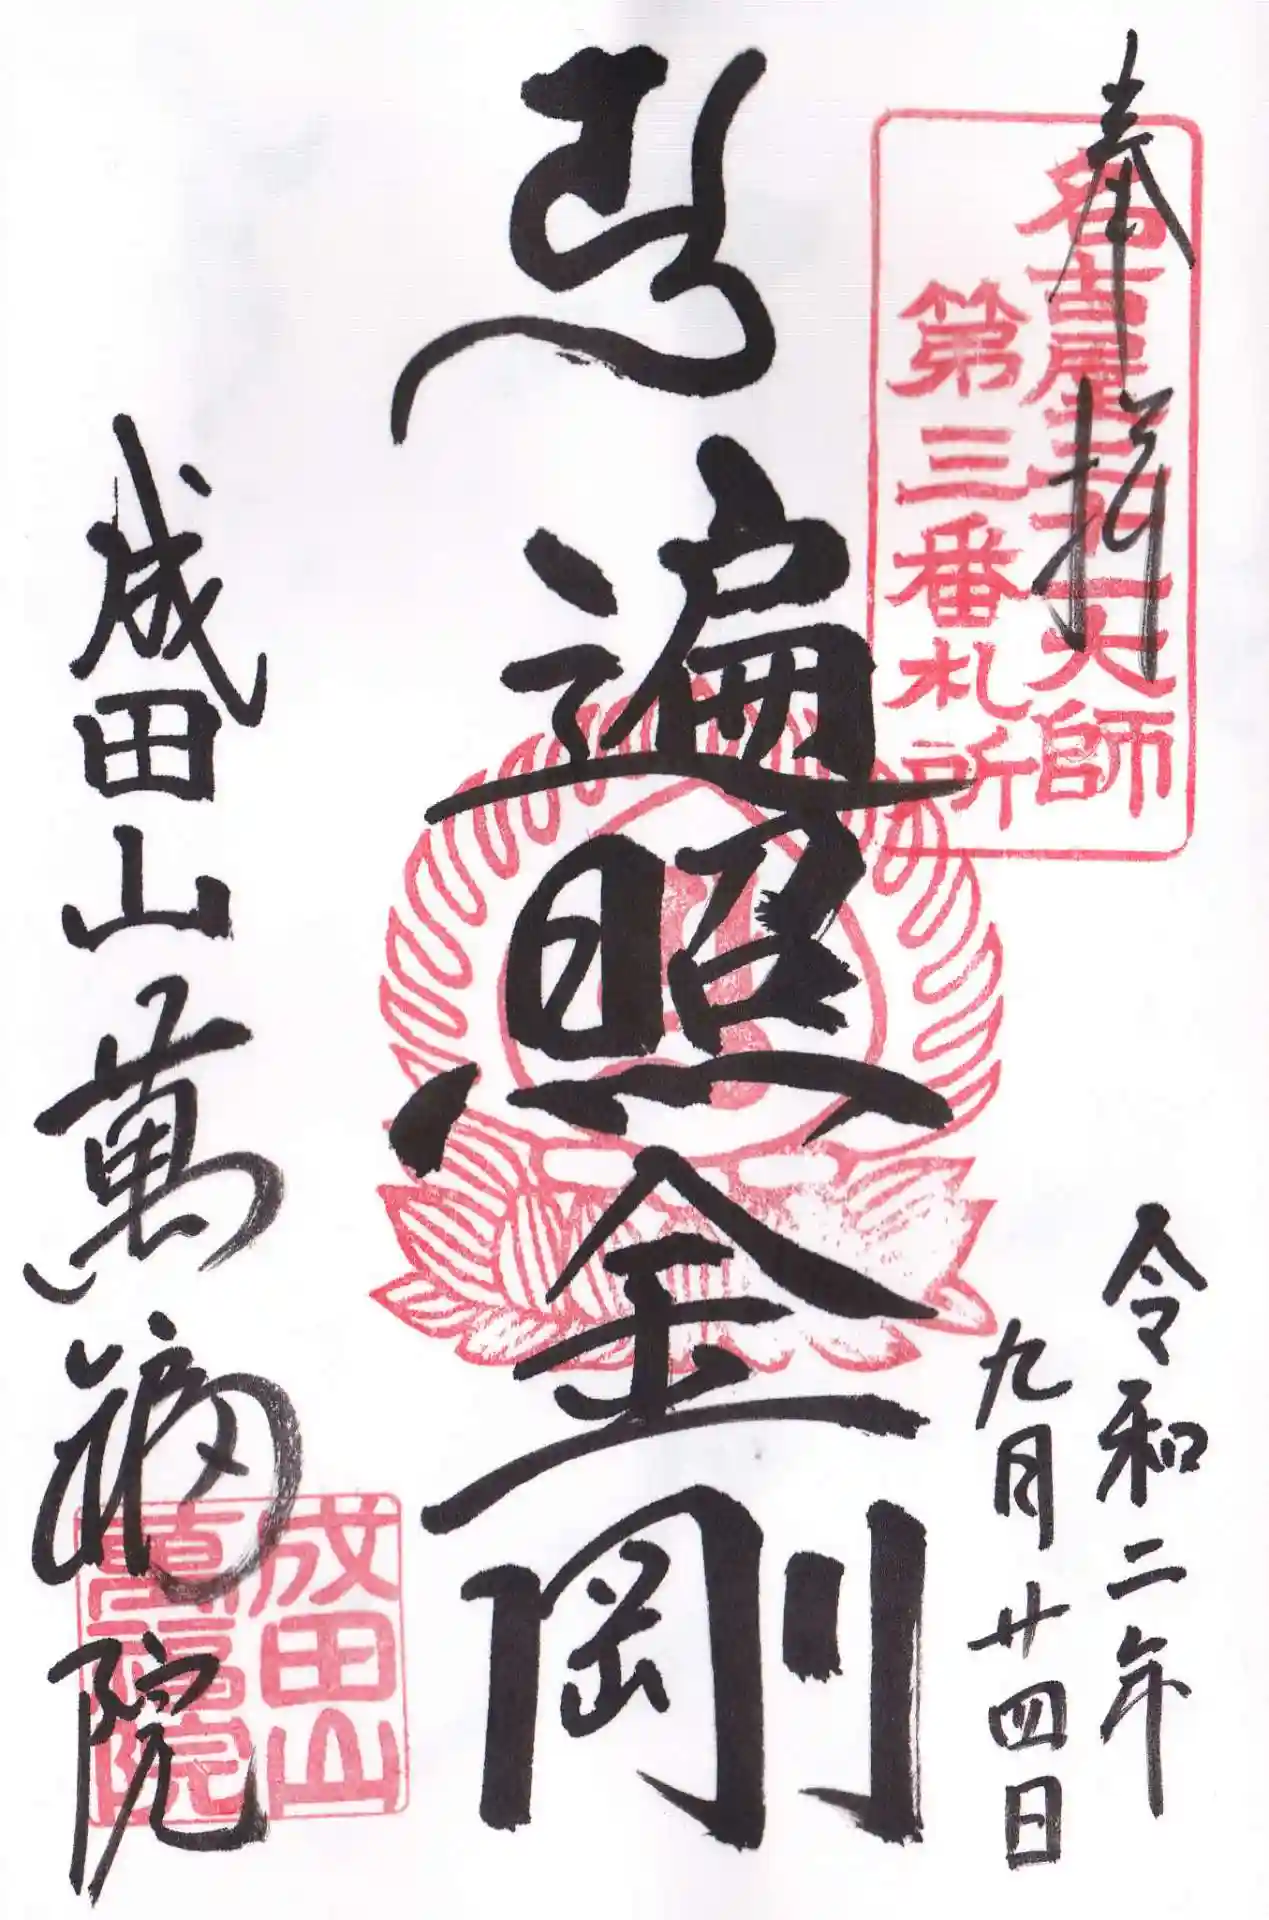 奉拝
名古屋二十一大師
第三番札所
令和二年
九月廿四日
遍照金剛
成田山萬福院
成田山
萬福院